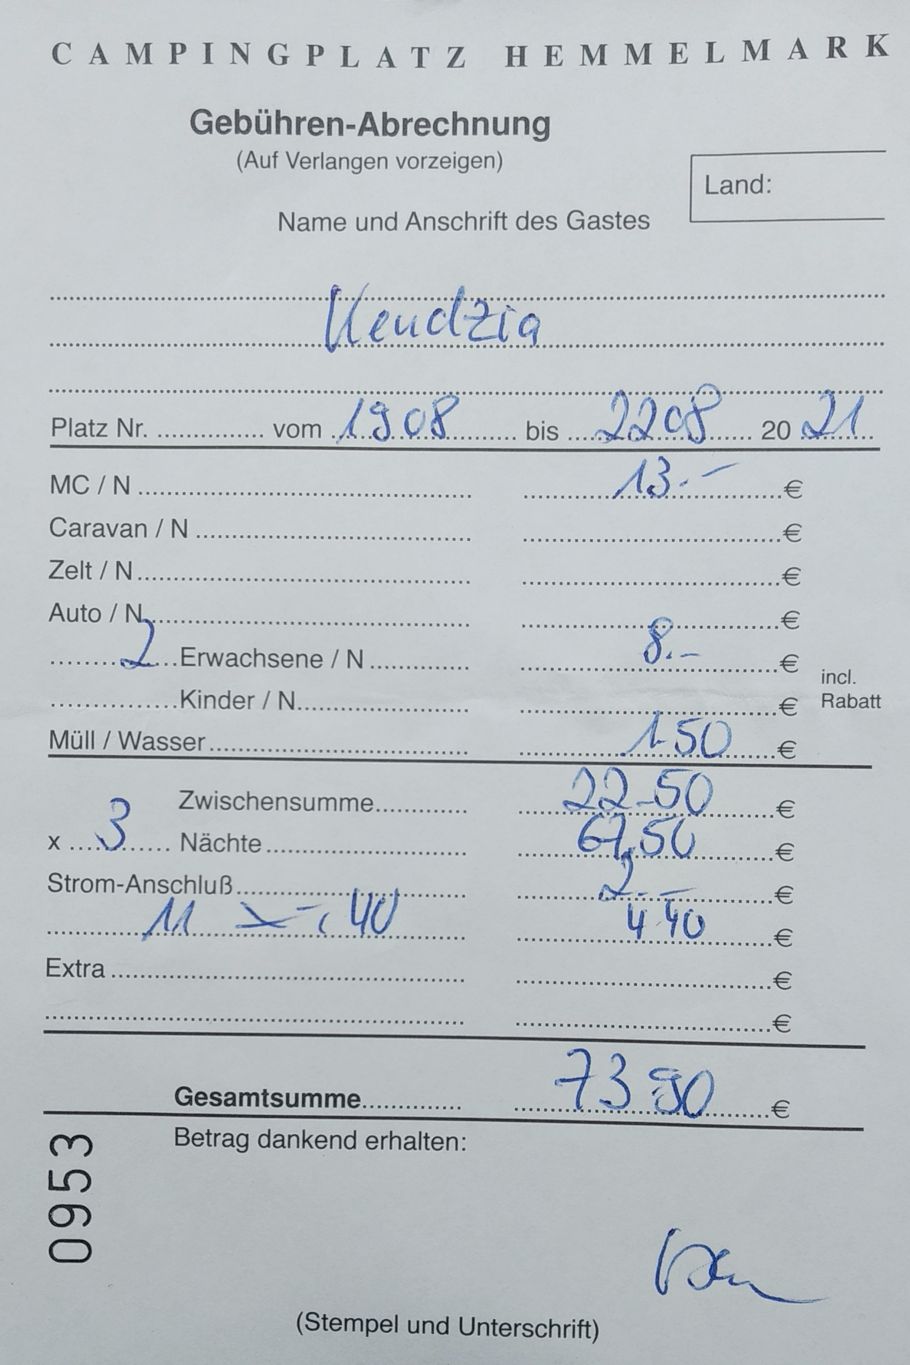 CAMPINGPLATZ HEMMELMARK
Gebühren-Abrechnung
(Auf Verlangen vorzeigen)
Land:
Name und Anschrift des Gastes
Kendzia
Platz Nr. .............. vom 19.08 .......... bis .... 22 08 ...... 20 21
MC / N .......... 13.- €
Caravan / N .......... €
Zelt / N .......... €
Auto / N .......... €
2 Erwachsene / N .......... 8.- €
incl.
Kinder / N .......... €
Rabatt
Müll / Wasser .......... 1.50 €
Zwischensumme .......... 22.50 €
x 3 Nächte .......... 67,50 €
Strom-Anschluß .......... 2.- €
11 x -,40 4.40 €
Extra .......... €
€
Gesamtsumme .......... 73 90 €
Betrag dankend erhalten:
0953
(Stempel und Unterschrift)